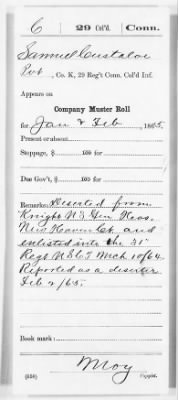 C | 29 Col'd | Conn.
Samuel Custaloe
Pvt, Co. K, 29 Reg't Conn. Col'd Inf.
Appears on
Company Muster Roll
for Jan & Feb, 1865.
Present or absent
Stoppage, $ 100 for
Due Gov't, $ 100 for
Remarks: Deserted from
Knight U.S. Gen Hos.
New Haven Ct. and
enlisted into the 31"
Regt U.S.C.T. Mch 10/64
Reported as a deserter
Feb 2/65.
Book mark:
Moy
(358) Copyist.